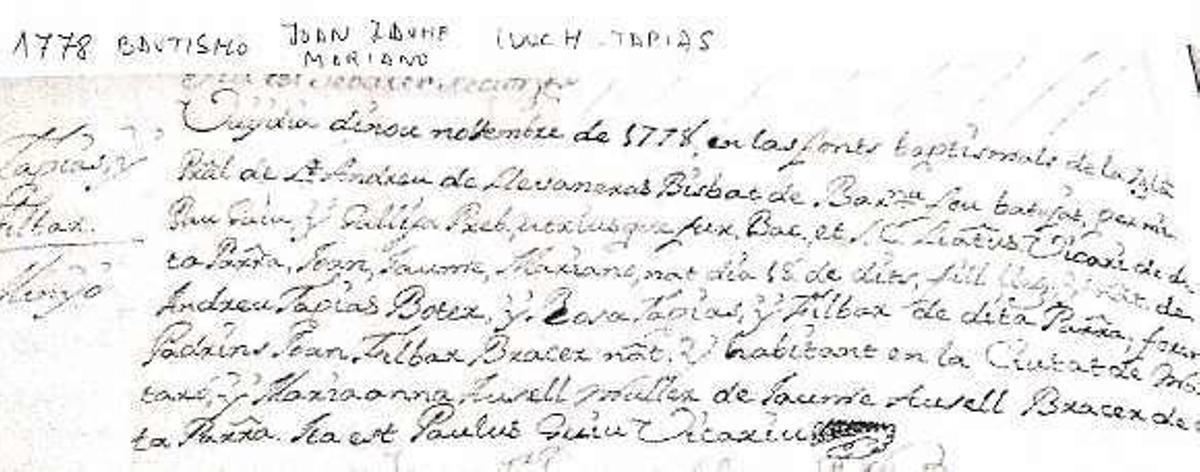 1778 BAUTISMO JOAN JAUME MARIANO LLUCH-TAPIAS
dinou nobembre de 1778, en las fonts baptismals de la Igla
Tapias, y
Pâl de St. Andreu de Llevaneras Bisbat de Barna fou batejat, per mi
Filbar.
Pau Guiu, y Gallifa Preb, utriusque jur. Bac, et S. Vicari de di
ta Parra, Joan, Jaume, Mariano, nat dia 18 de dits, fill de
Minyó
Andreu Tapias Boter, y Rosa Tapias, y Filbar de dita Parra, foren
Padrins Joan Filbar Bracer nât. y habitant en la Ciutat de Ma
taró, y Mariaanna Ausell Muller de Jaume Ausell Bracer de
ta Parra. Ita est Paulus Guiu Vicarius